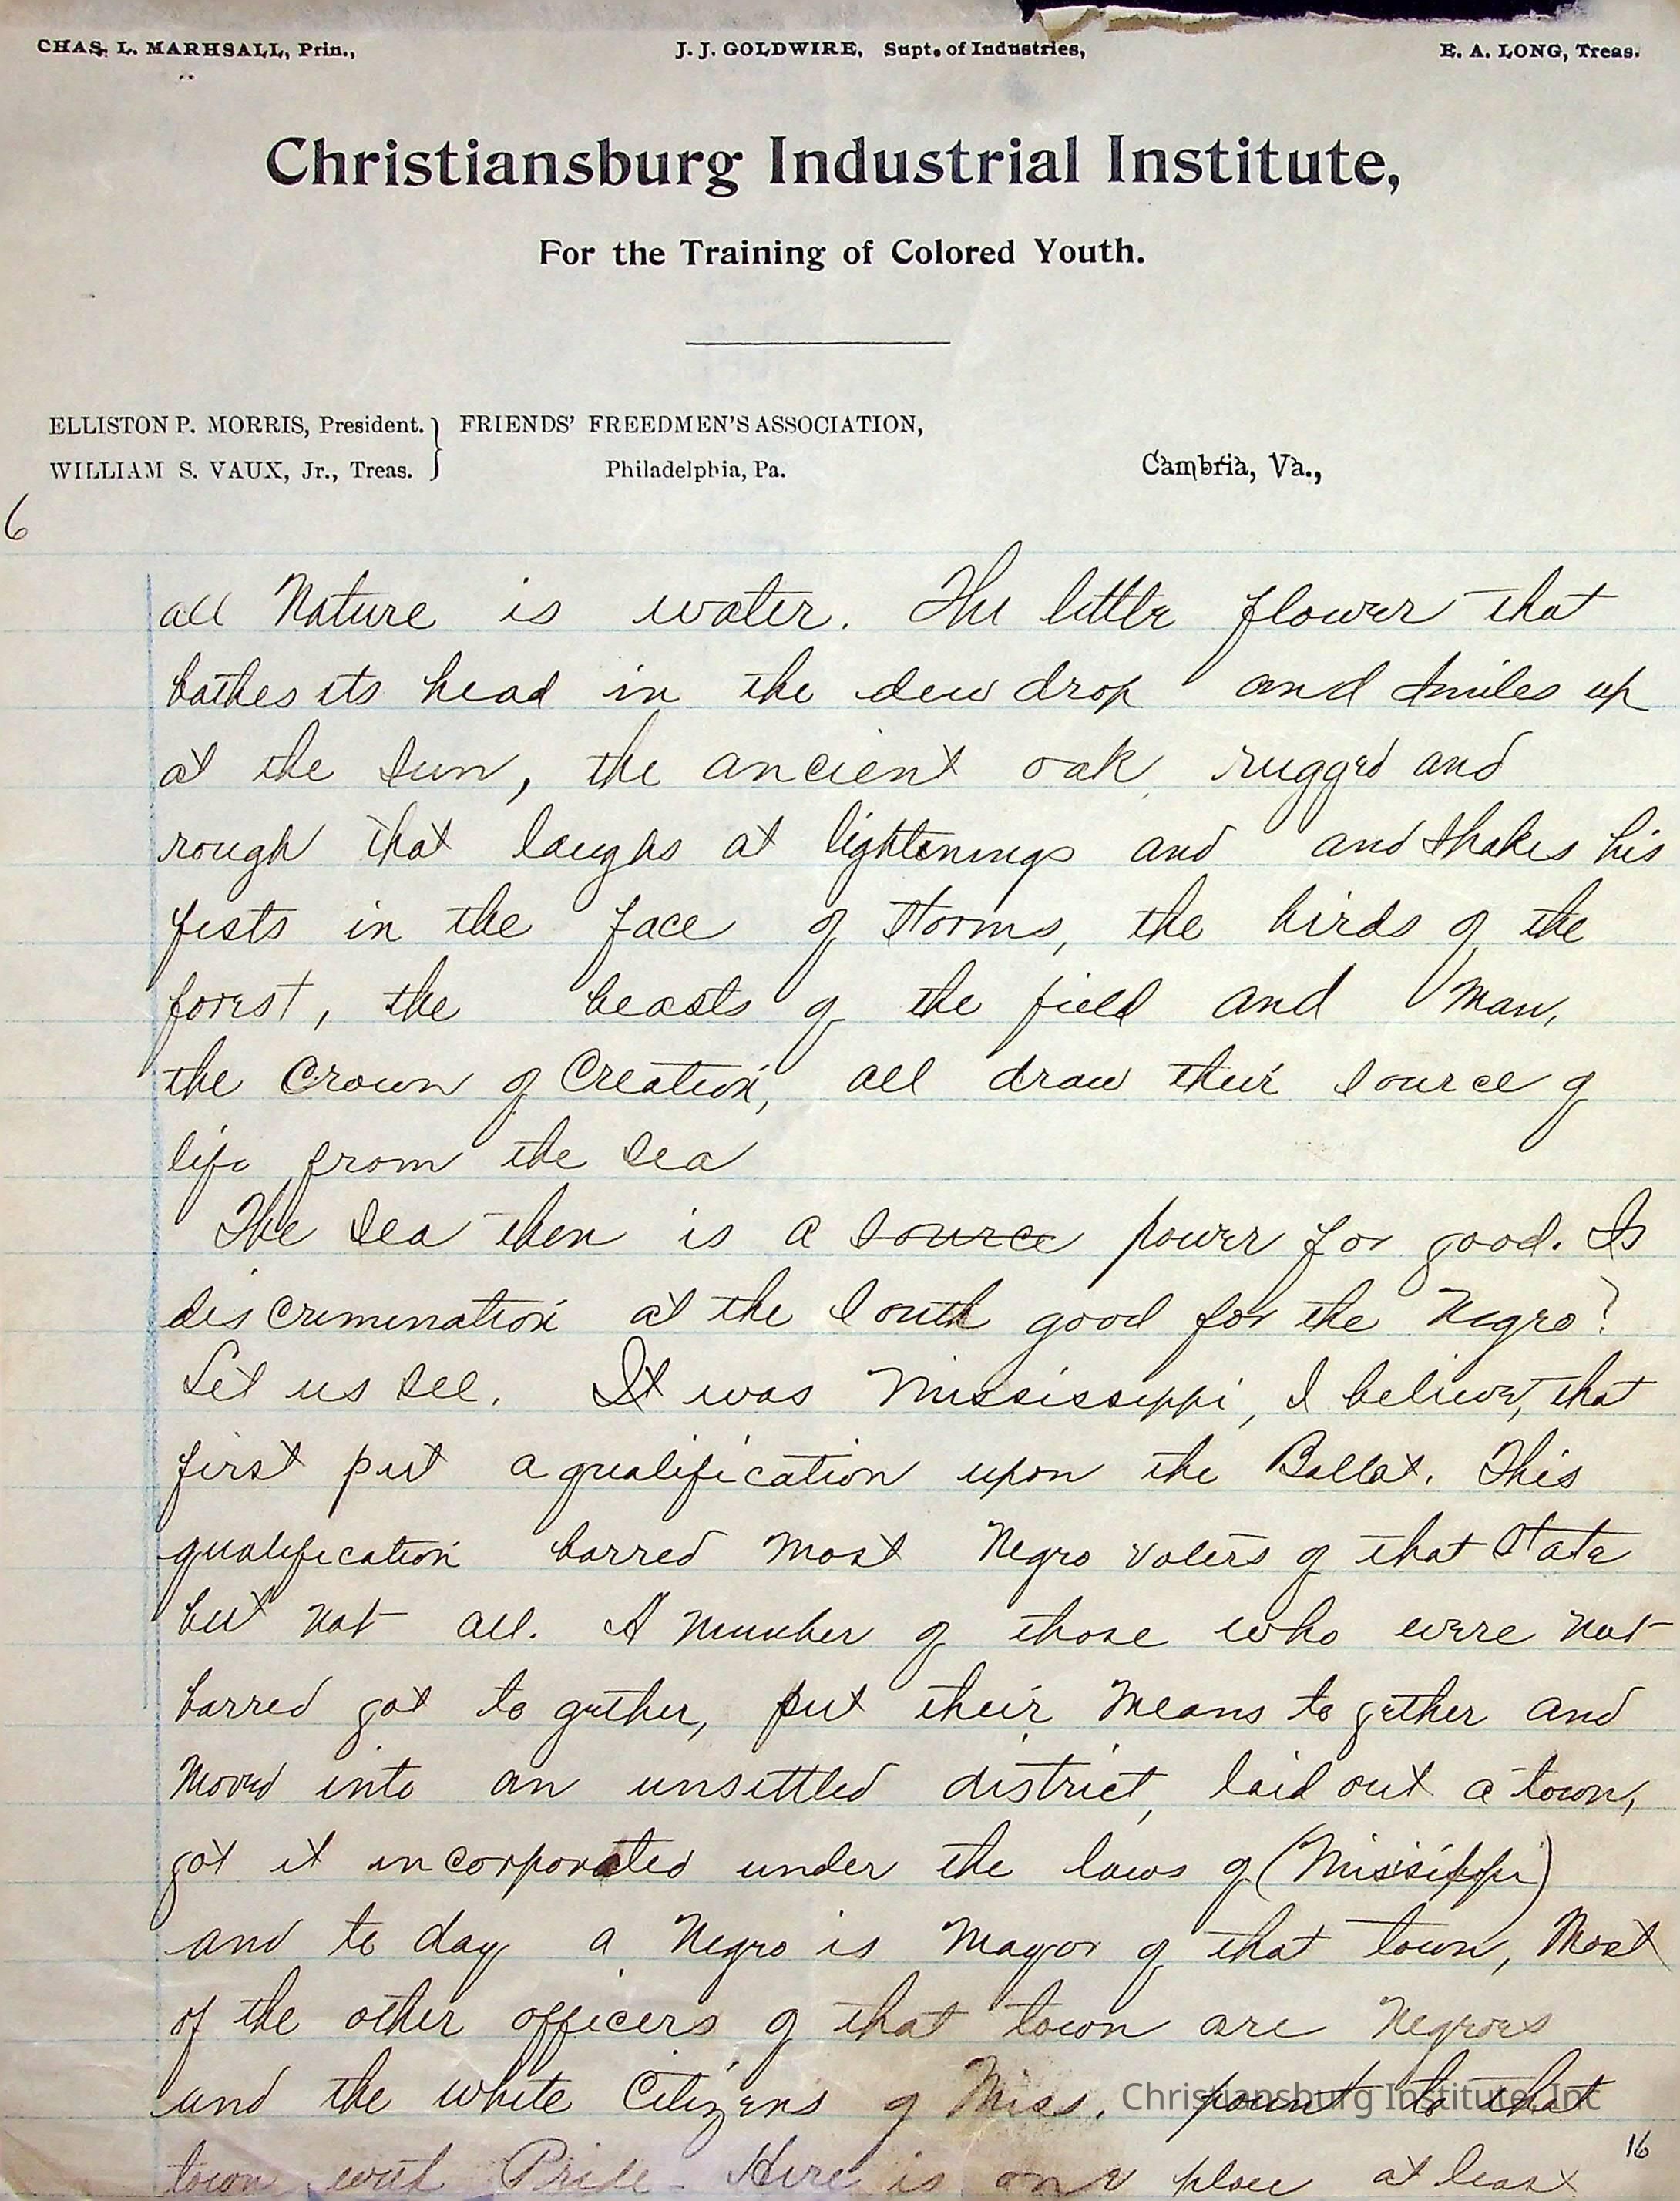 CHAS. L. MARHSALL, Prin., J. J. GOLDWIRE, Supt. of Industries, E. A. LONG, Treas.
Christiansburg Industrial Institute,
For the Training of Colored Youth.
ELLISTON P. MORRIS, President. } FRIENDS' FREEDMEN'S ASSOCIATION,
WILLIAM S. VAUX, Jr., Treas. } Philadelphia, Pa. Cambria, Va.,
6
all Nature is water. The little flower that
bathes its head in the dew drop and smiles up
at the sun, the ancient oak rugged and
rough that laughs at lightenings and and shakes his
fists in the face of storms, the birds of the
forest, the beasts of the field and man,
the Crown of Creation, all draw their source of
life from the sea
The sea then is a source power for good. Is
discrimination at the South good for the Negro?
Let us see. It was Mississippi, I believe, that
first put a qualification upon the Ballot. This
qualification barred most Negro voters of that State
but not all. A number of those who were not
barred got to gether, put their means to gether and
moved into an unsettled district, laid out a town,
got it incorporated under the laws of (Missisippi)
and to day a Negro is Mayor of that town, Most
of the other officers of that town are Negroes
and the white Citizens of Miss. point to that
Christiansburg Institute, Inc
town with Pride - Here is one place at least
16